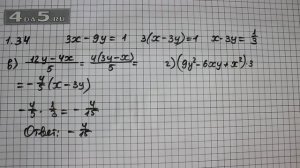 4DA5.RU
1.34 3x - 9y = 1 3(x-3y)=1 x-3y=1/3
в) (12y-4x)/5 = 4(3y-x)/5 = г) (9y²-6xy+x²)·3
= -4/5 (x-3y)
-4/5 · 1/3 = -4/15
Ответ: -4/15